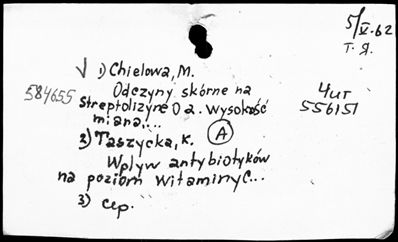 5/V-62
Т. Я.
√ 1) Chielowa, M.
Odczyny skórne na
584655
Streptolizynę O a. wysokość
miana,...
Чит
556151
2) Taszycka, K. (A)
Wpływ antybiotyków
na poziom witaminy C...
3) сер.